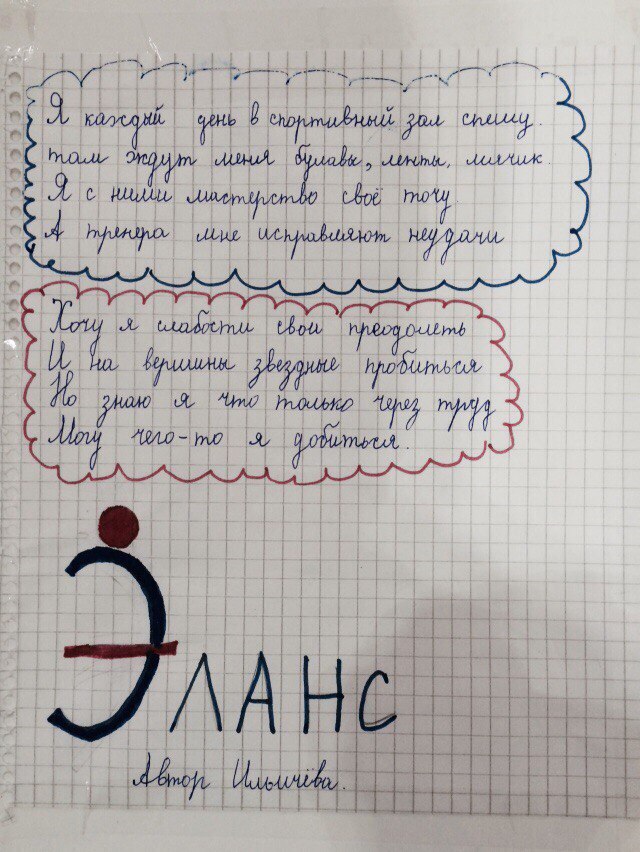 Я каждый день в спортивный зал спешу.
там ждут меня булавы, ленты, мячик.
Я с ними мастерство своё точу.
А тренера мне исправляют неудачи
Хочу я слабости свои преодолеть
И на вершины звездные пробиться
Но знаю я что только через труд
Могу чего-то я добиться.
Эланс
Автор Ильичёва.